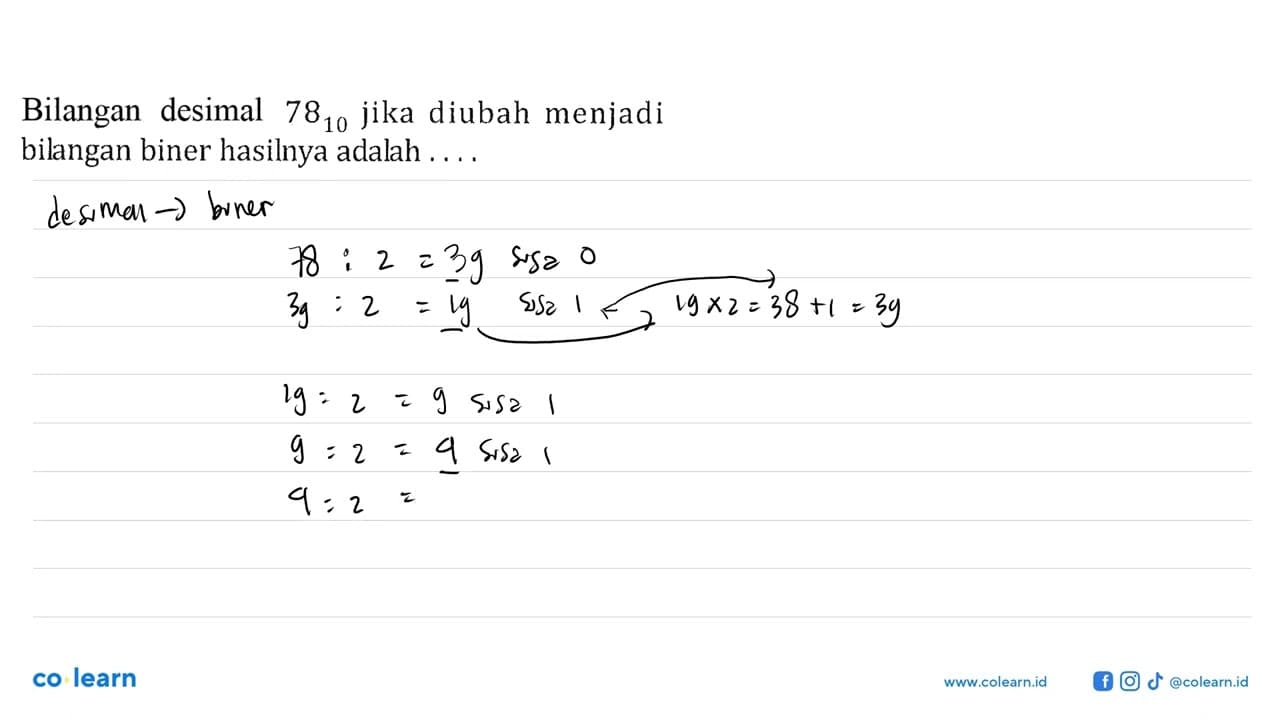 Bilangan desimal 78₁₀ jika diubah menjadi
bilangan biner hasilnya adalah . . . .
desimal → biner
78 : 2 = 39 sisa 0
39 : 2 = 19 sisa 1 19 x 2 = 38 + 1 = 39
19 : 2 = 9 sisa 1
9 : 2 = 4 sisa 1
4 : 2 =
co learn
www.colearn.id @colearn.id